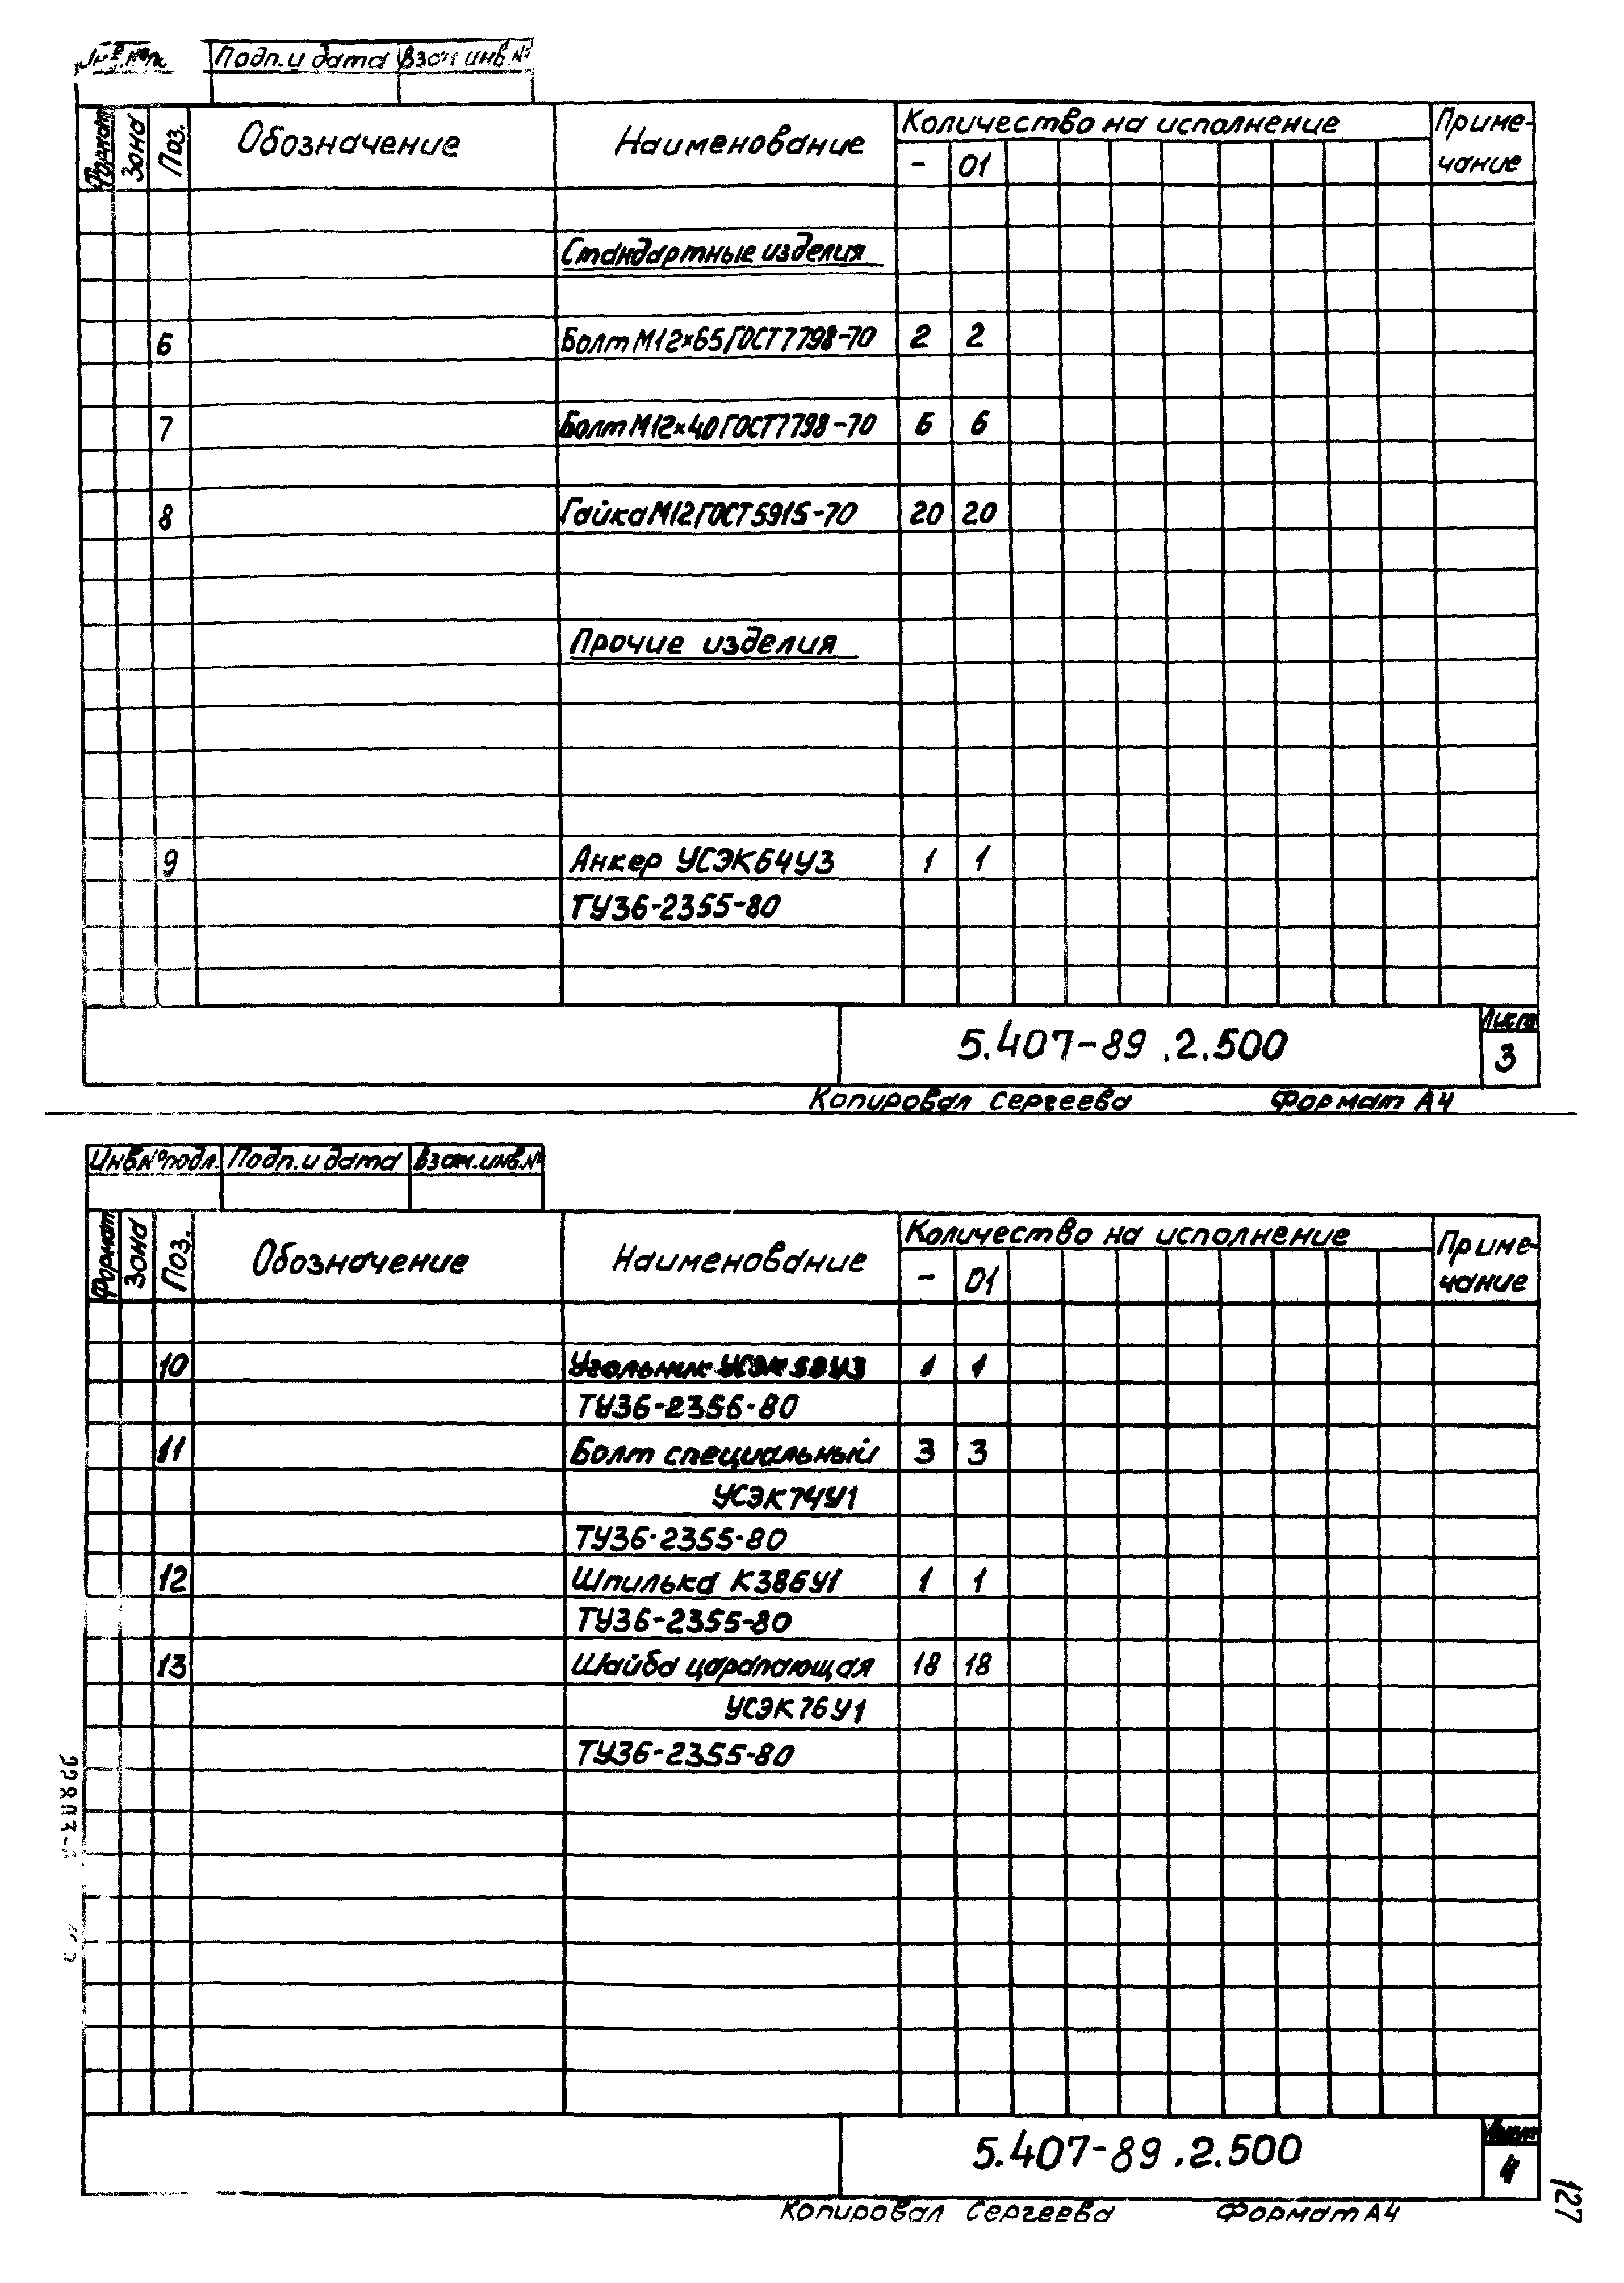 Подп. и дата Взам инв. №
Формат Зона Поз. Обозначение Наименование Количество на исполнение Приме-
- 01 чание
Стандартные изделия
6 Болт М12×65 ГОСТ 7798-70 2 2
7 Болт М12×40 ГОСТ 7798-70 6 6
8 Гайка М12 ГОСТ 5915-70 20 20
Прочие изделия
9 Анкер УСЭК64У3 1 1
ТУ36-2355-80
5.407-89.2.500 Лист
3
Копировал Сергеева Формат А4
Инв№подл. Подп. и дата Взам. инв. №
Формат Зона Поз. Обозначение Наименование Количество на исполнение Приме-
- 01 чание
10 Угольник 1 1
ТУ36-2355-80
11 Болт специальный 3 3
УСЭК74У1
ТУ36-2355-80
12 Шпилька К386У1 1 1
ТУ36-2355-80
13 Шайба царапающая 18 18
УСЭК76У1
ТУ36-2355-80
5.407-89.2.500 Лист
4
Копировал Сергеева Формат А4
127